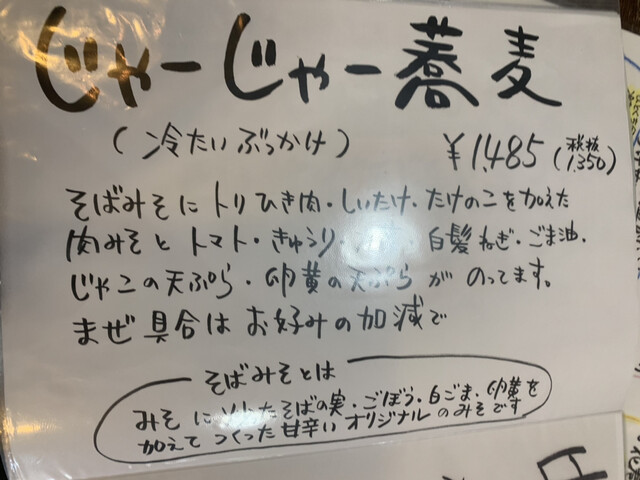 じゃーじゃー蕎麦
(冷たいぶっかけ)
¥1,485(税抜1,350)
そばみそにトリひき肉・しいたけ・たけのこを加えた
肉みそとトマト・きゅうり・白髪ねぎ・ごま油・
じゃこの天ぷら・卵黄の天ぷらがのってます。
まぜ具合はお好みの加減で
そばみそとは
みそにいったそばの実・ごぼう・白ごま・卵黄を
加えてつくった甘辛いオリジナルのみそです